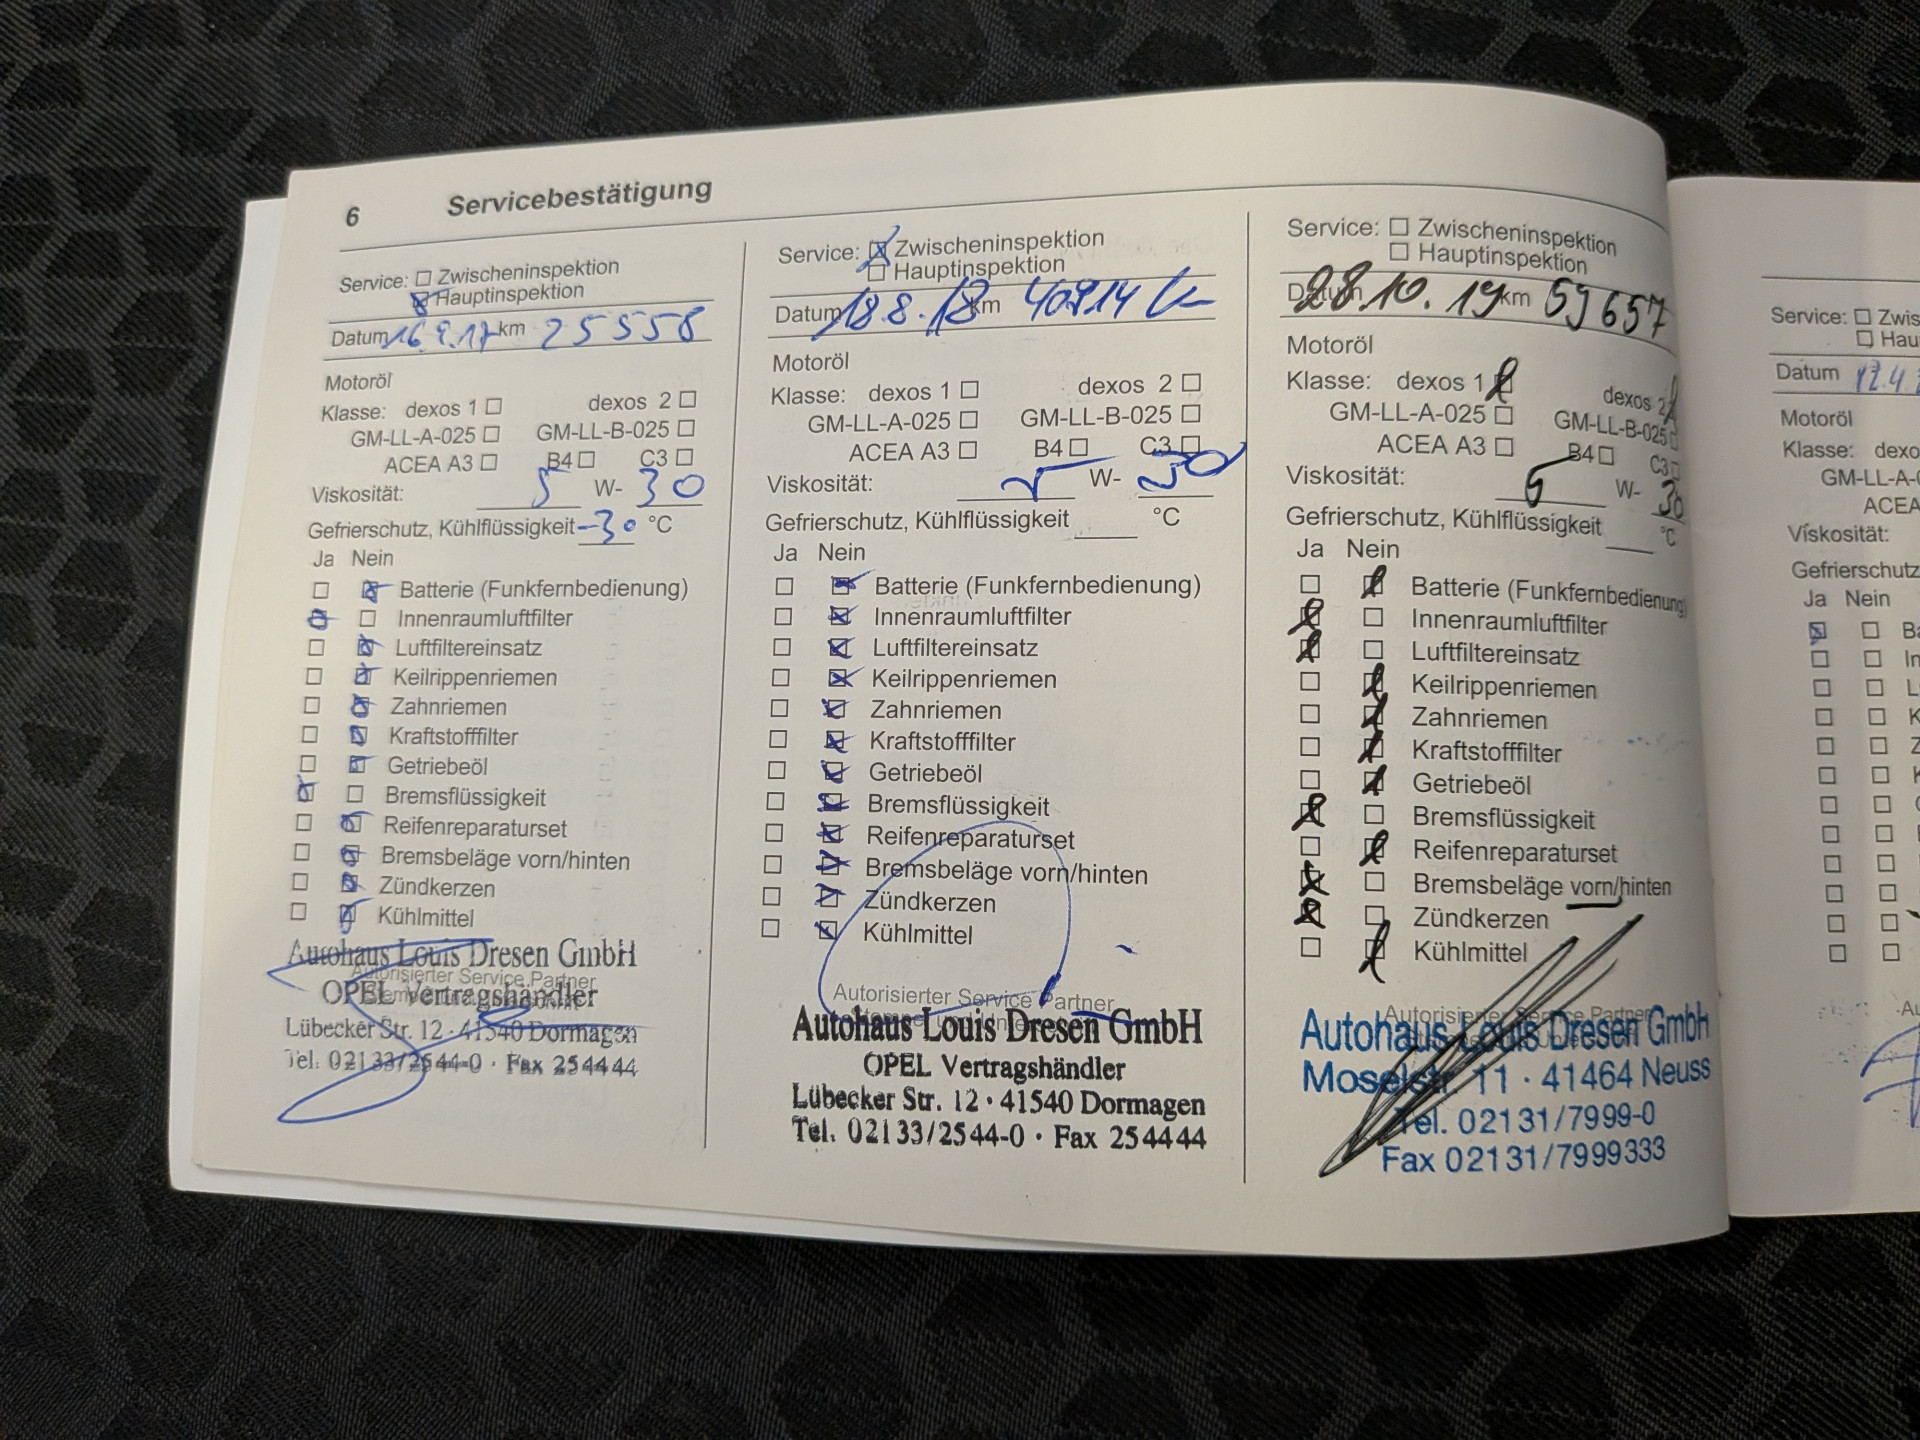 6 Servicebestätigung
Service: Zwischeninspektion
Hauptinspektion
Datum km 25558
Motoröl
Klasse: dexos 1 dexos 2
GM-LL-A-025 GM-LL-B-025
ACEA A3 B4 C3
Viskosität: 5 W- 30
Gefrierschutz, Kühlflüssigkeit -30 °C
Ja Nein
Batterie (Funkfernbedienung)
Innenraumluftfilter
Luftfiltereinsatz
Keilrippenriemen
Zahnriemen
Kraftstofffilter
Getriebeöl
Bremsflüssigkeit
Reifenreparaturset
Bremsbeläge vorn/hinten
Zündkerzen
Kühlmittel
Autorisierter Service Partner
Autohaus Louis Dresen GmbH
OPEL Vertragshändler
Lübecker Str. 12 · 41540 Dormagen
Tel. 02133/2544-0 · Fax 254444
Service: Zwischeninspektion
Hauptinspektion
Datum 18.8.18 km
Motoröl
Klasse: dexos 1 dexos 2
GM-LL-A-025 GM-LL-B-025
ACEA A3 B4 C3
Viskosität: 5 W- 30
Gefrierschutz, Kühlflüssigkeit °C
Ja Nein
Batterie (Funkfernbedienung)
Innenraumluftfilter
Luftfiltereinsatz
Keilrippenriemen
Zahnriemen
Kraftstofffilter
Getriebeöl
Bremsflüssigkeit
Reifenreparaturset
Bremsbeläge vorn/hinten
Zündkerzen
Kühlmittel
Autorisierter Service Partner
Autohaus Louis Dresen GmbH
OPEL Vertragshändler
Lübecker Str. 12 · 41540 Dormagen
Tel. 02133/2544-0 · Fax 254444
Service: Zwischeninspektion
Hauptinspektion
Datum 28.10.19 km 59657
Motoröl
Klasse: dexos 1 dexos 2
GM-LL-A-025 GM-LL-B-025
ACEA A3 B4 C3
Viskosität: 5 W- 30
Gefrierschutz, Kühlflüssigkeit °C
Ja Nein
Batterie (Funkfernbedienung)
Innenraumluftfilter
Luftfiltereinsatz
Keilrippenriemen
Zahnriemen
Kraftstofffilter
Getriebeöl
Bremsflüssigkeit
Reifenreparaturset
Bremsbeläge vorn/hinten
Zündkerzen
Kühlmittel
Autorisierter Service Partner
Autohaus Louis Dresen GmbH
Moselstr. 11 · 41464 Neuss
Tel. 02131/7999-0
Fax 02131/7999333
Service: Zwis
Hau
Datum
Motoröl
Klasse: dexo
GM-LL-A-0
ACEA
Viskosität:
Gefrierschutz
Ja Nein